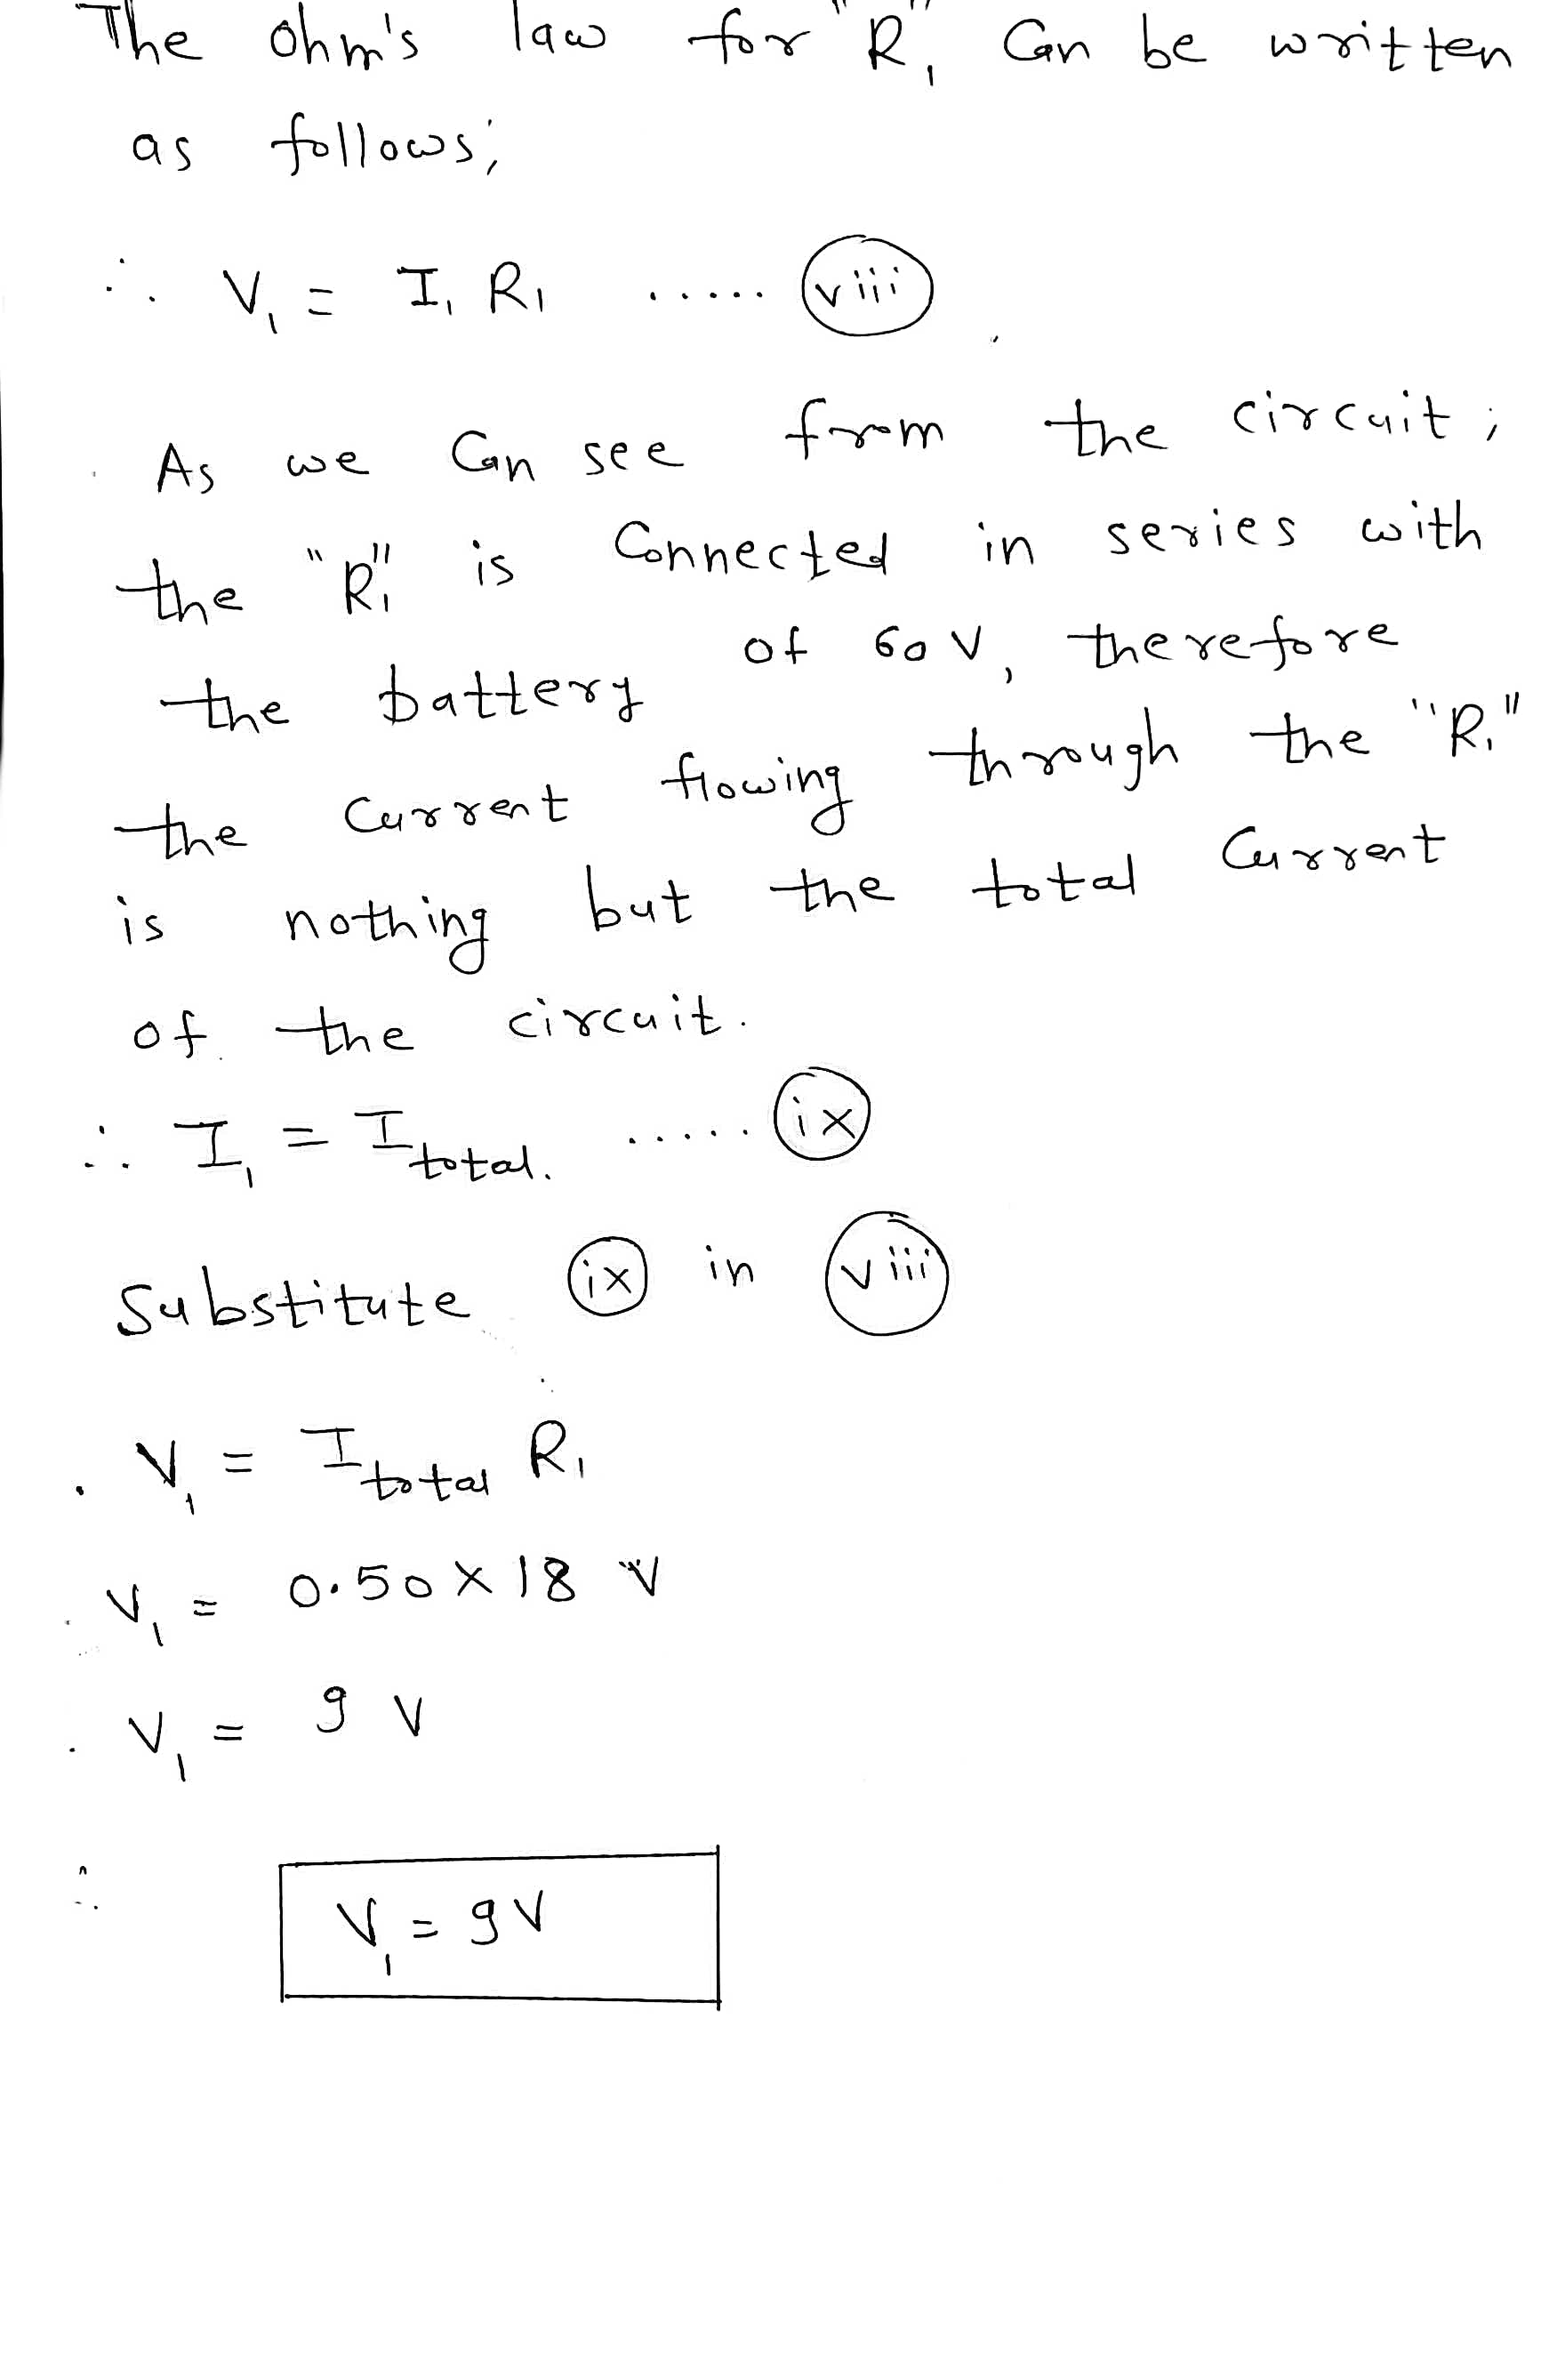 The ohm's law for "R₁" can be written
as follows;
∴ V₁ = I₁ R₁ ..... (viii)
As we can see from the circuit;
the "R₁" is connected in series with
the battery of 60 V, therefore
the current flowing through the "R₁"
is nothing but the total current
of the circuit.
∴ I₁ = I total. ..... (ix)
Substitute (ix) in (viii)
∴ V₁ = I total R₁
∴ V₁ = 0.50 × 18 V
∴ V₁ = 9 V
∴ V₁ = 9 V